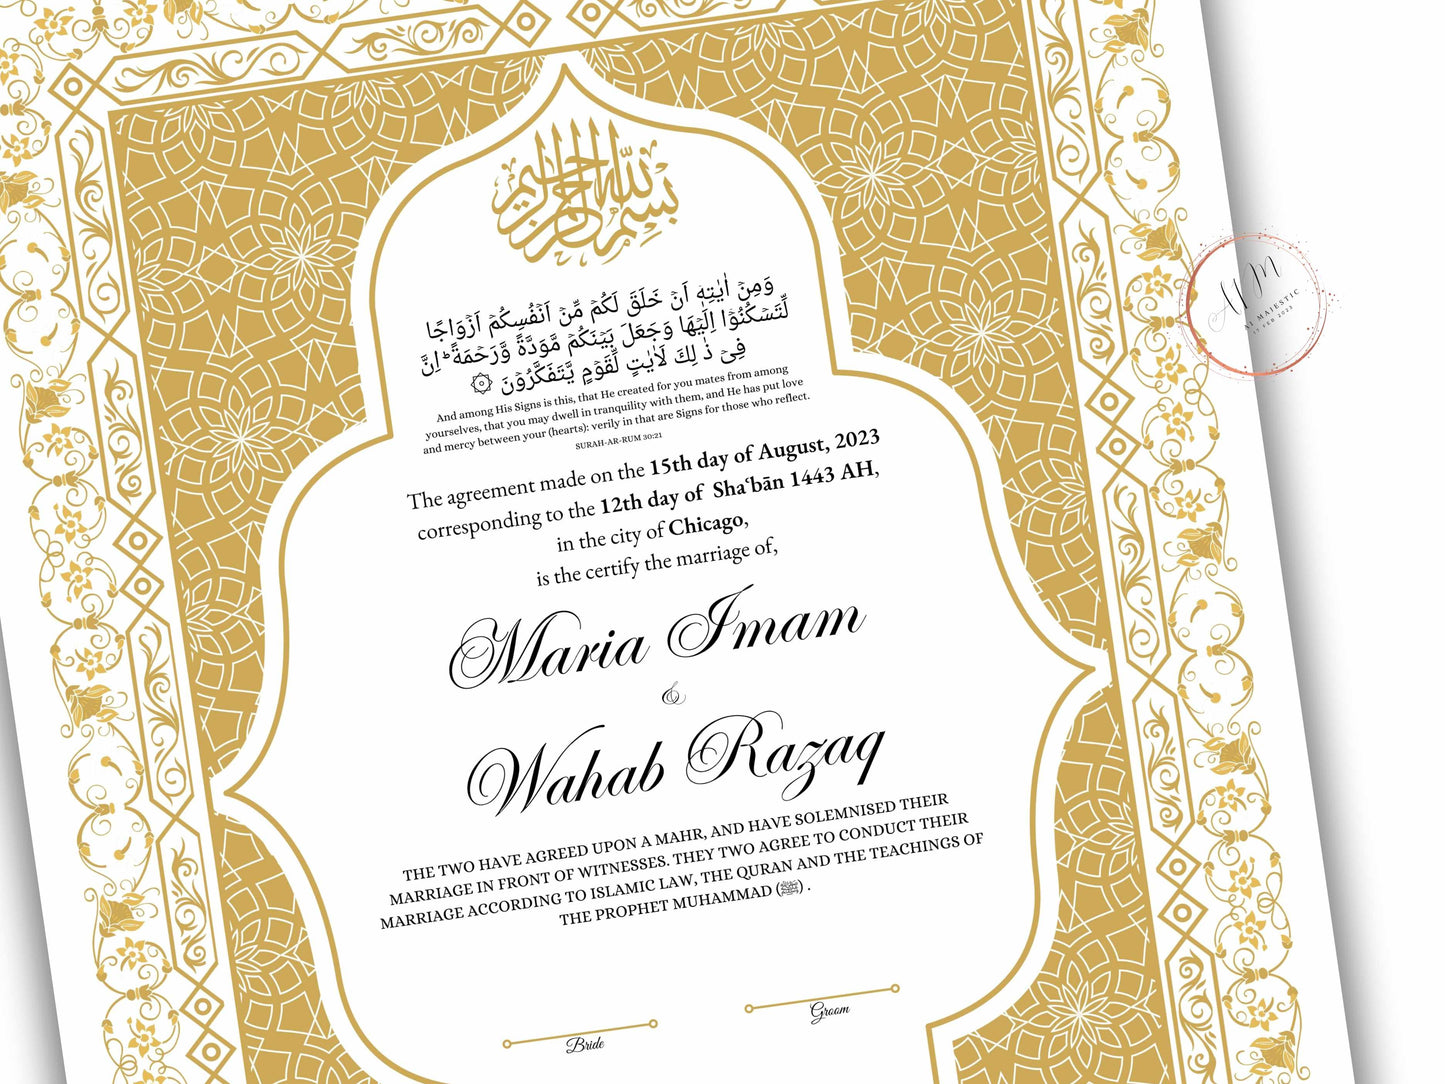 بسم الله الرحمن الرحيم
وَمِنْ اٰيٰتِهٖۤ اَنْ خَلَقَ لَكُمْ مِّنْ اَنْفُسِكُمْ اَزْوَاجًا
لِّتَسْكُنُوْۤا اِلَيْهَا وَجَعَلَ بَيْنَكُمْ مَّوَدَّةً وَّرَحْمَةً ؕ اِنَّ
فِيْ ذٰ لِكَ لَاٰيٰتٍ لِّقَوْمٍ يَّتَفَكَّرُوْنَ ۞
And among His Signs is this, that He created for you mates from among
yourselves, that you may dwell in tranquility with them, and He has put love
and mercy between your (hearts): verily in that are Signs for those who reflect.
SURAH-AR-RUM 30:21
The agreement made on the 15th day of August, 2023
corresponding to the 12th day of Shaʿbān 1443 AH,
in the city of Chicago,
is the certify the marriage of,
Maria Imam
&
Wahab Razaq
THE TWO HAVE AGREED UPON A MAHR, AND HAVE SOLEMNISED THEIR
MARRIAGE IN FRONT OF WITNESSES. THEY TWO AGREE TO CONDUCT THEIR
MARRIAGE ACCORDING TO ISLAMIC LAW, THE QURAN AND THE TEACHINGS OF
THE PROPHET MUHAMMAD (ﷺ) .
Bride
Groom
AM
AL MAJESTIC
17 FEB 2023